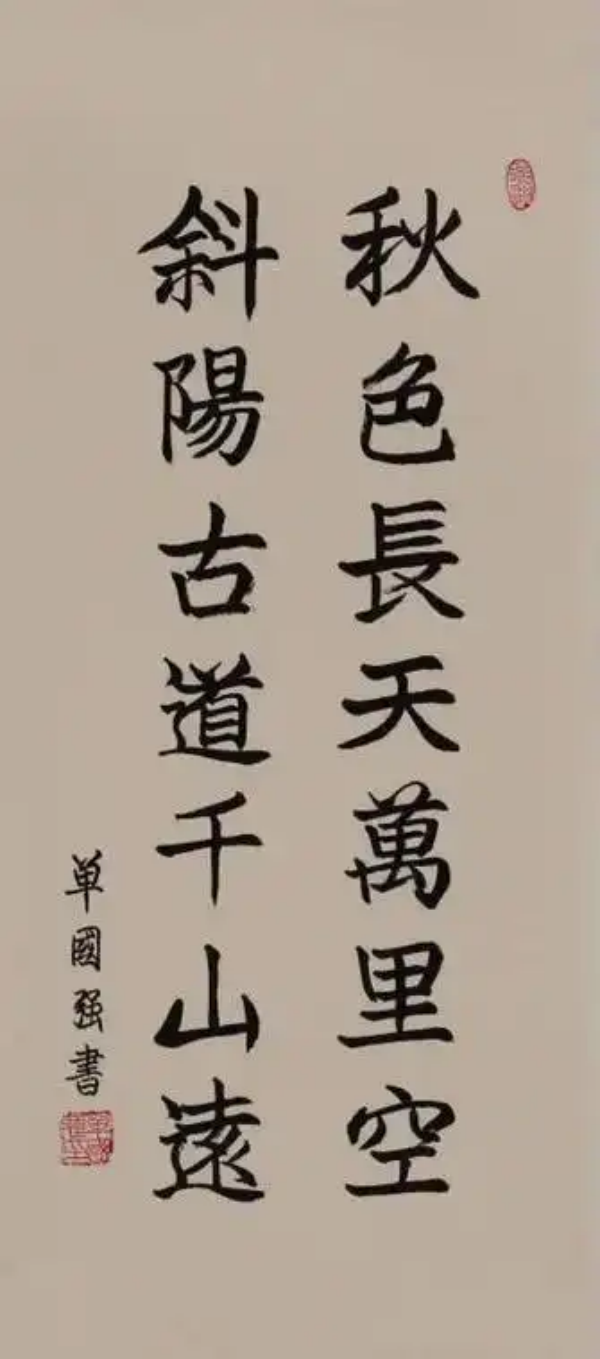 秋色長天萬里空
斜陽古道千山遠
单國强書